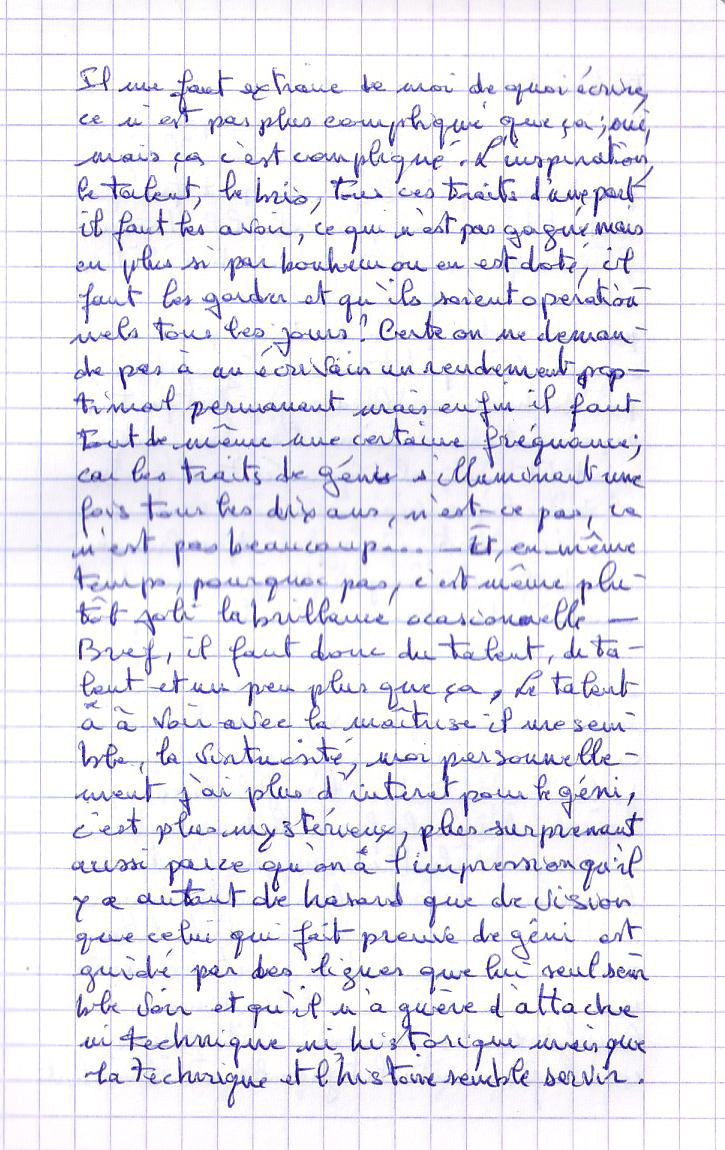 Il me faut extraire de moi de quoi écrire,
ce n'est pas plus compliqué que ça ; oui,
mais ça c'est compliqué. L'inspiration,
le talent, le brio, tous ces traits d'une part
il faut les avoir, ce qui n'est pas gagné mais
en plus si par bonheur on en est doté, il
faut les garder et qu'ils soient opération-
nels tous les jours ? Certe on ne deman-
de pas à un écrivain un rendement pop-
timal permanent mais enfin il faut
tout de même une certaine fréquance ;
car les traits de génie s'illuminant une
fois tous les dix ans, n'est-ce pas, ce
n'est pas beaucoup... — Et, en même
temps, pourquoi pas, c'est même plu-
tôt joli la brillance ocasionnelle —
Bref, il faut donc du talent, du ta-
lent et un peu plus que ça, Le talent
a à voir avec la maîtrise il me sem
ble, la virtuosité, moi personnelle-
ment j'ai plus d'interet pour le géni,
c'est plus mystérieux, plus surprenant
aussi parce qu'on à l'impression qu'il
y a autant de hasard que de vision
que celui qui fait preuve de gêni est
guidé par des lignes que lui seul sem
ble voir et qu'il n'a guère d'attache
ni technique ni historique mais que
la technique et l'histoire semble servir.